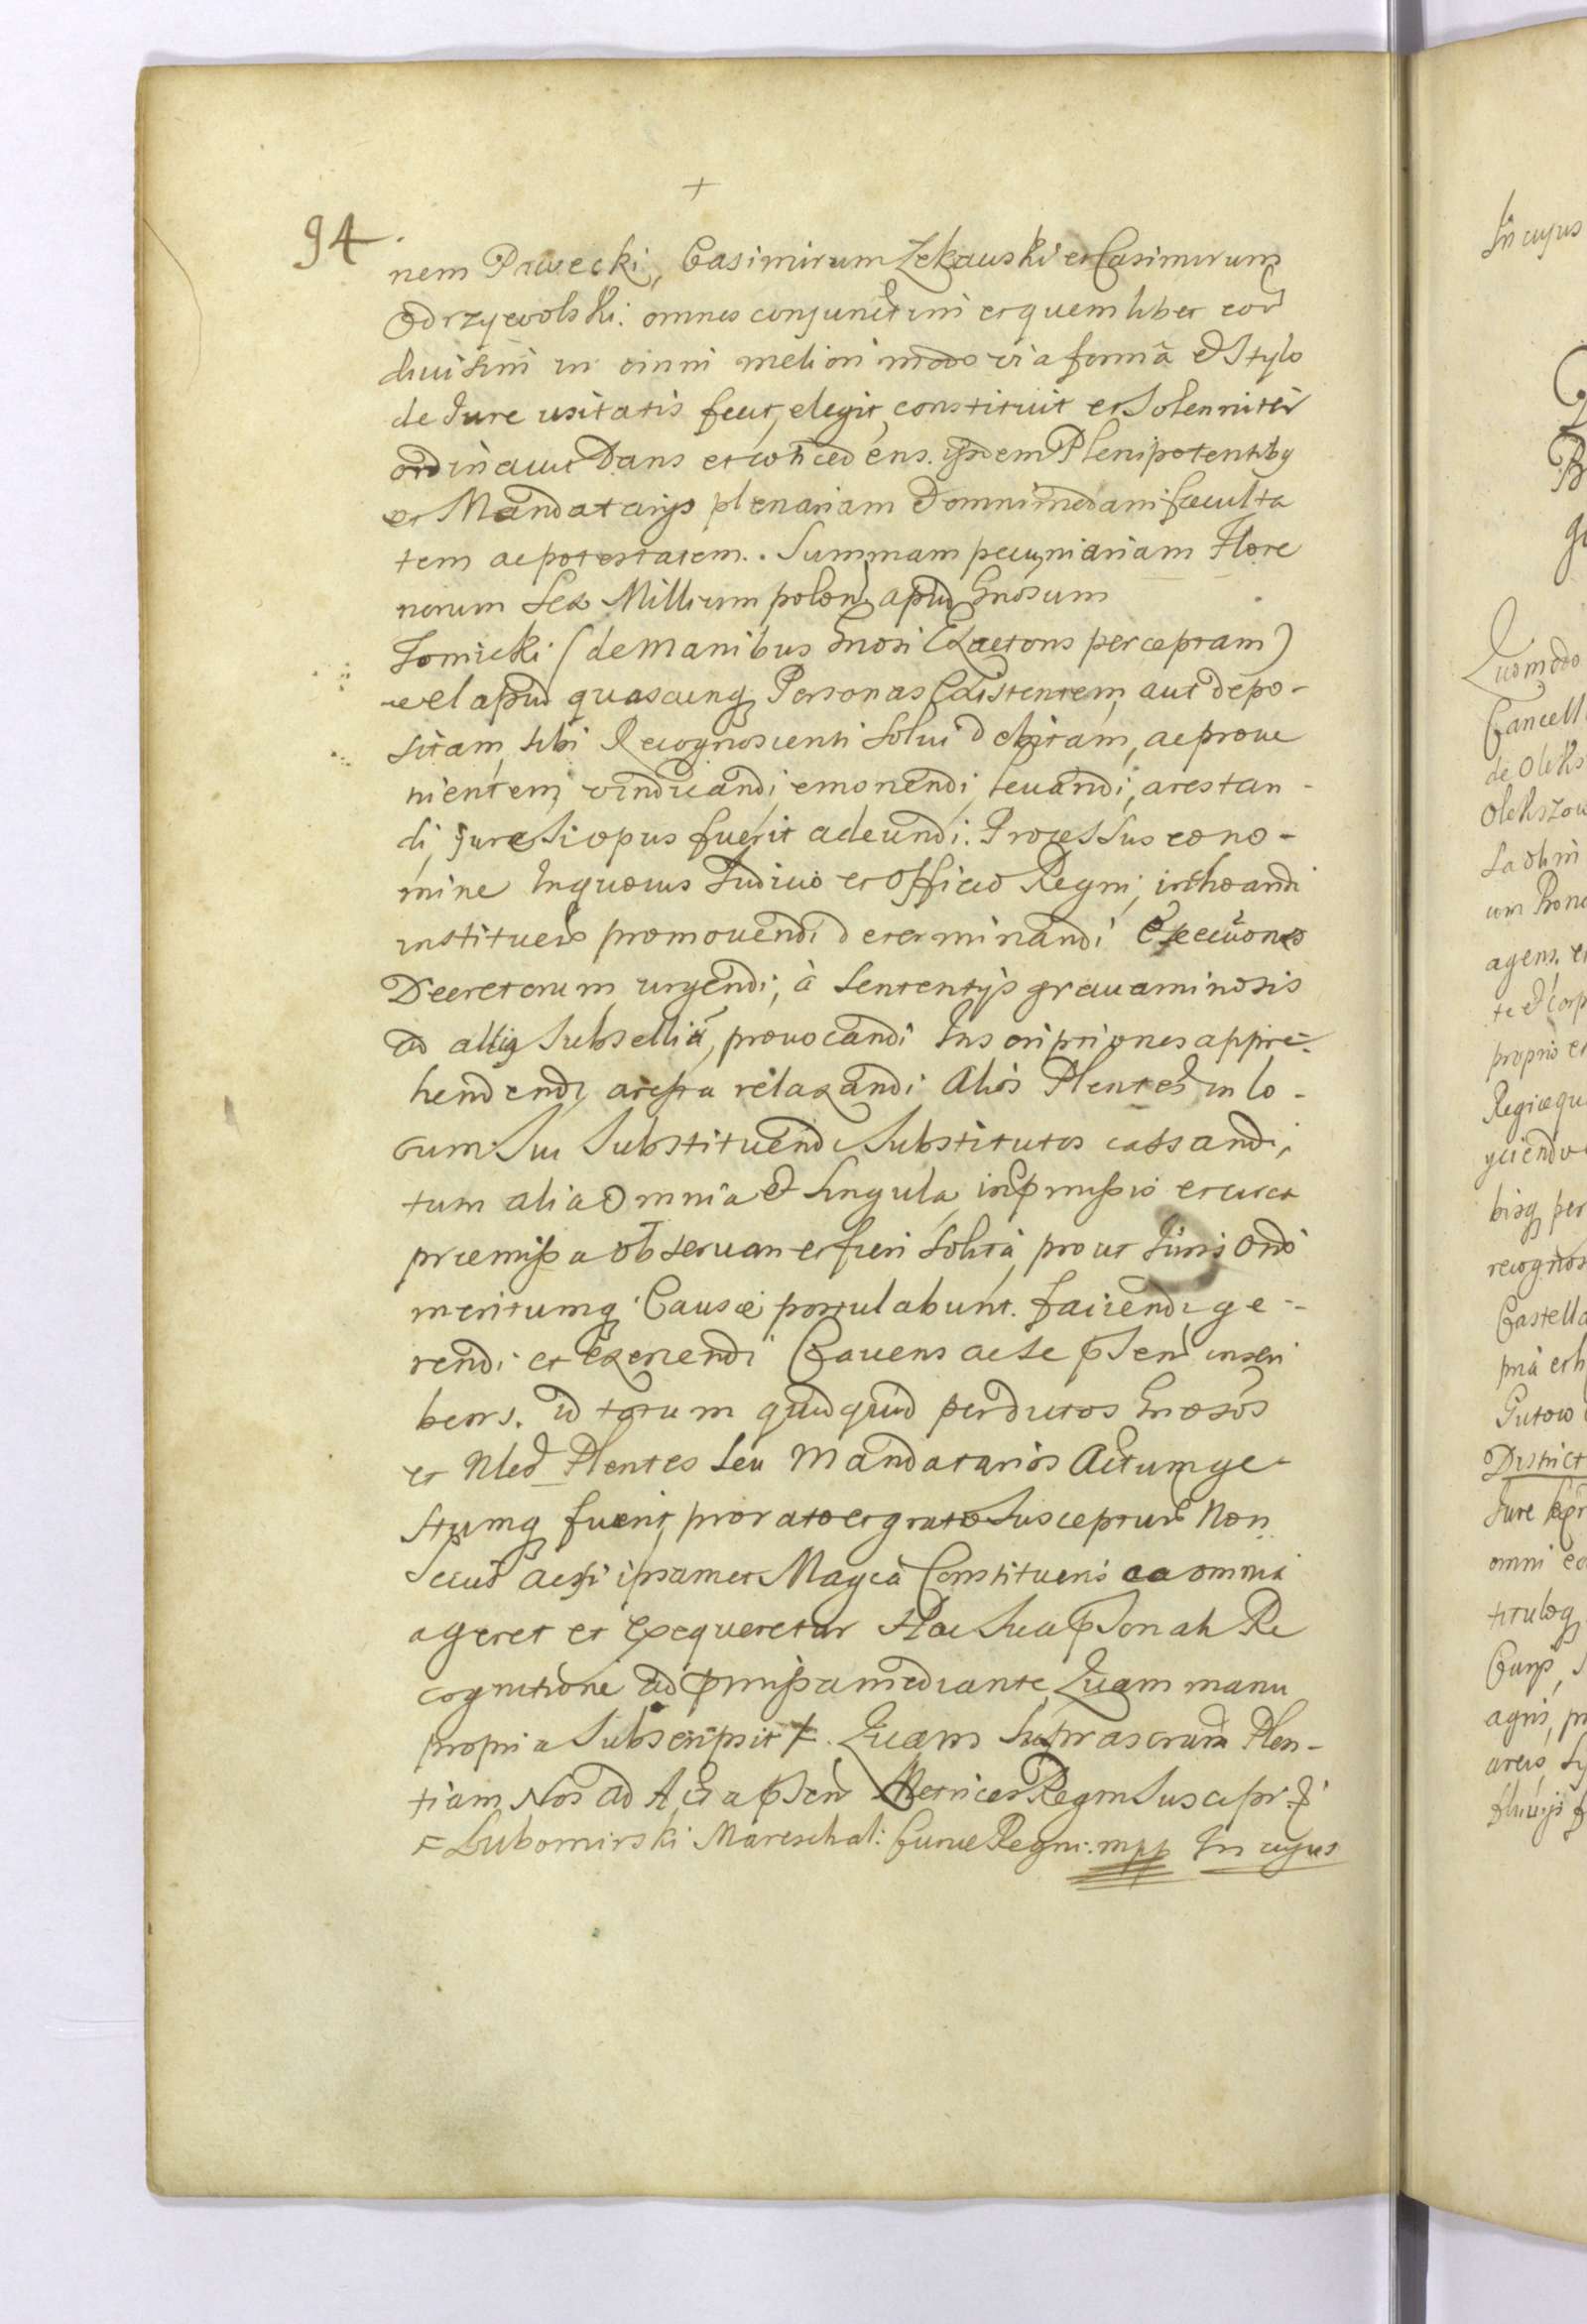 +
94.
nem Pawecki, Casimirum Zekauski et Casimirum
Odrzywolski. omnes conjunctim et quemlibet eor
divisim in omni meliori modo via forma et Stylo
de Jure usitatis fecit, elegit, constituit et Solenniter
ordinavit Dans et concedens. ijsdem Plenipotentibq
et Mandatarijs plenariam et omnimodam faculta
tem ac potestatem. Summam pecuniariam Flore
norum Sex Millium polon apud Gnosum
Łomicki (de manibus Gnosi Exactoris perceptam)
vel apud quascunq Personas Existentem, aut depo-
sitam, sibi Recognoscenti Solvi debitam, ac prove
nientem vindicandi, emonendi, levandi, arestan-
di, Jure si opus fuerit adeundi. Processus eo no-
mine In quovis Judicio et Officio Regni, inchoandi
instituen promovendi determinandi Executiones
Decretorum urgendi, à Sententijs gravaminosis
ad altiq Subsellia, provocandi Inscriptiones appre-
hendendi, aresta relaxandi Alios Plentes in lo-
cum Sui Substituendi Substitutos cassandi,
tum alia Omnia et Singula, in pmissis et circa
præmissa observari et fieri Solita, prout Juris Ordo
meritumq Causæ postulabunt. faciendi, ge-
rendi et Exercendi Cavens ac se psen inscri
bens. id totum quidquid per dictos Gnosos
et Nled Plentes Seu Mandatarios Actum ge-
stumq fuerit, pro rato et grato Suscepturum Non
Secus ac si ipsamet Magca Constituens ea omnia
ageret et Exequeretur Hac Sua psonali Re
cognitione ad pmissa mediante, Quam manu
propria Subscripsit ⨍. Quam Suprascram Plen-
tiam Nos ad Acta psen Metrices Regni Suscepi ⨍
= Lubomirski Mareschal: Curiæ Regni: mpp In cujus